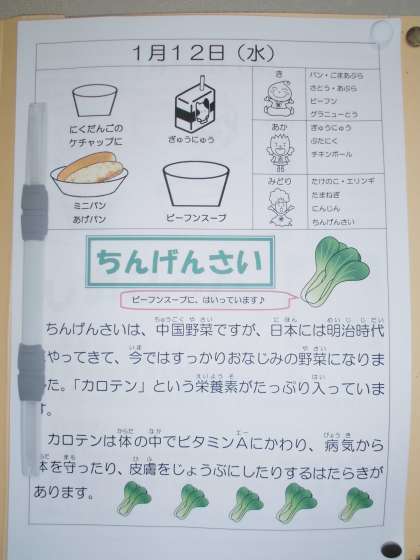 1月12日（水）
にくだんごの
ケチャップに
ぎゅうにゅう
ミニパン
あげパン
ビーフンスープ
き
パン・ごまあぶら
さとう・あぶら
ビーフン
グラニューとう
あか
ぎゅうにゅう
ぶたにく
チキンボール
みどり
たけのこ・エリンギ
たまねぎ
にんじん
ちんげんさい
ちんげんさい
ビーフンスープに、はいっています♪
ちんげんさいは、中国野菜ですが、日本には明治時代
やってきて、今ではすっかりおなじみの野菜になりま
た。「カロテン」という栄養素がたっぷり入っていま
す。
カロテンは体の中でビタミンAにかわり、病気から
体を守ったり、皮膚をじょうぶにしたりするはたらきが
あります。